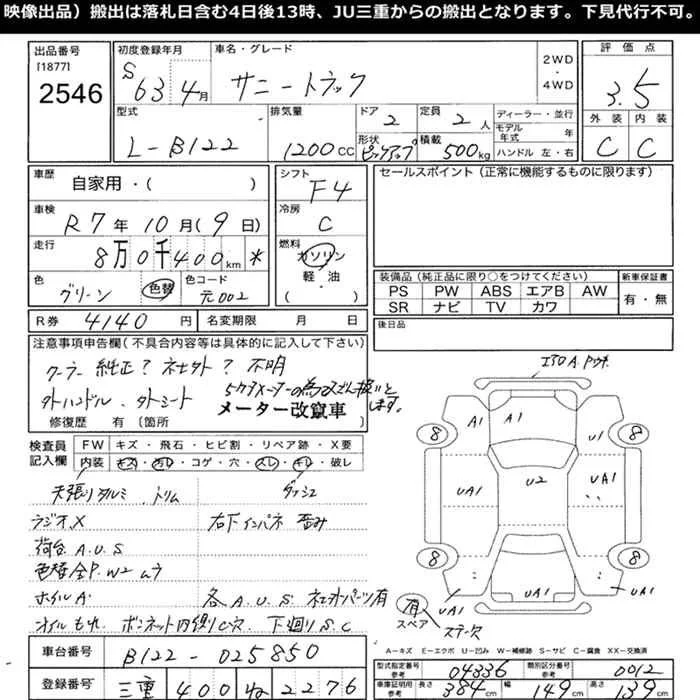 映像出品）搬出は落札日含む4日後13時、JU三重からの搬出となります。下見代行不可。
出品番号 [1877] 2546
初度登録年月 S63年4月
車名・グレード サニートラック
2WD・4WD
評価点 3.5
外装 C 内装 C
型式 L-B122
排気量 1200cc
ドア 2
形状 ピックアップ
定員 2人
積載 500kg
ディーラー・並行
モデル年式 年
ハンドル 左・右
車歴 自家用・( )
シフト F4
セールスポイント（正常に機能するものに限ります）
車検 R7年10月(9日)
冷房 C
走行 8万0千400km *
燃料 ガソリン 軽・油 ( )
色 グリーン 色替
色コード 元002
装備品（純正品に限り○をつけてください）
PS PW ABS エアB AW
SR ナビ TV カワ
新車保証書 有・無
R券 4140円
名変期限 月 日
後日品
注意事項申告欄（不具合内容等は具体的に記入して下さい）
クーラー純正？社外？不明
外ハンドル、外シート
5ケタメーターの為
メーター改竄車
します。
修復歴 有〔箇所 〕
検査員記入欄
FW キズ・飛石・ヒビ割・リペア跡・X要
内装 キズ・汚レ・コゲ・穴・スレ・キレ・破レ
天張りタルミ、トリム ダッシュ
ラジオX 右下インパネ歪み
荷台A.U.S
色替全P.W2ムラ
ホイルA 各A.U.S 社外パーツ有
オイルもれ ボンネット内繰りC穴 下廻りS.C
車台番号 B122-025850
登録番号 三重 400 ね 2276
A1 A1 U1
8 8
UA1 U2 UA1
8 8
UA1 UA1 UA1
有 スペア
A-キズ E-エクボ U-凹み W-補修跡 S-サビ C-腐食 XX-交換済
型式指定番号 参考 04336
類別区分番号 参考 0012
車庫証明用 参考 長さ 384cm 幅 149cm 高さ 139cm